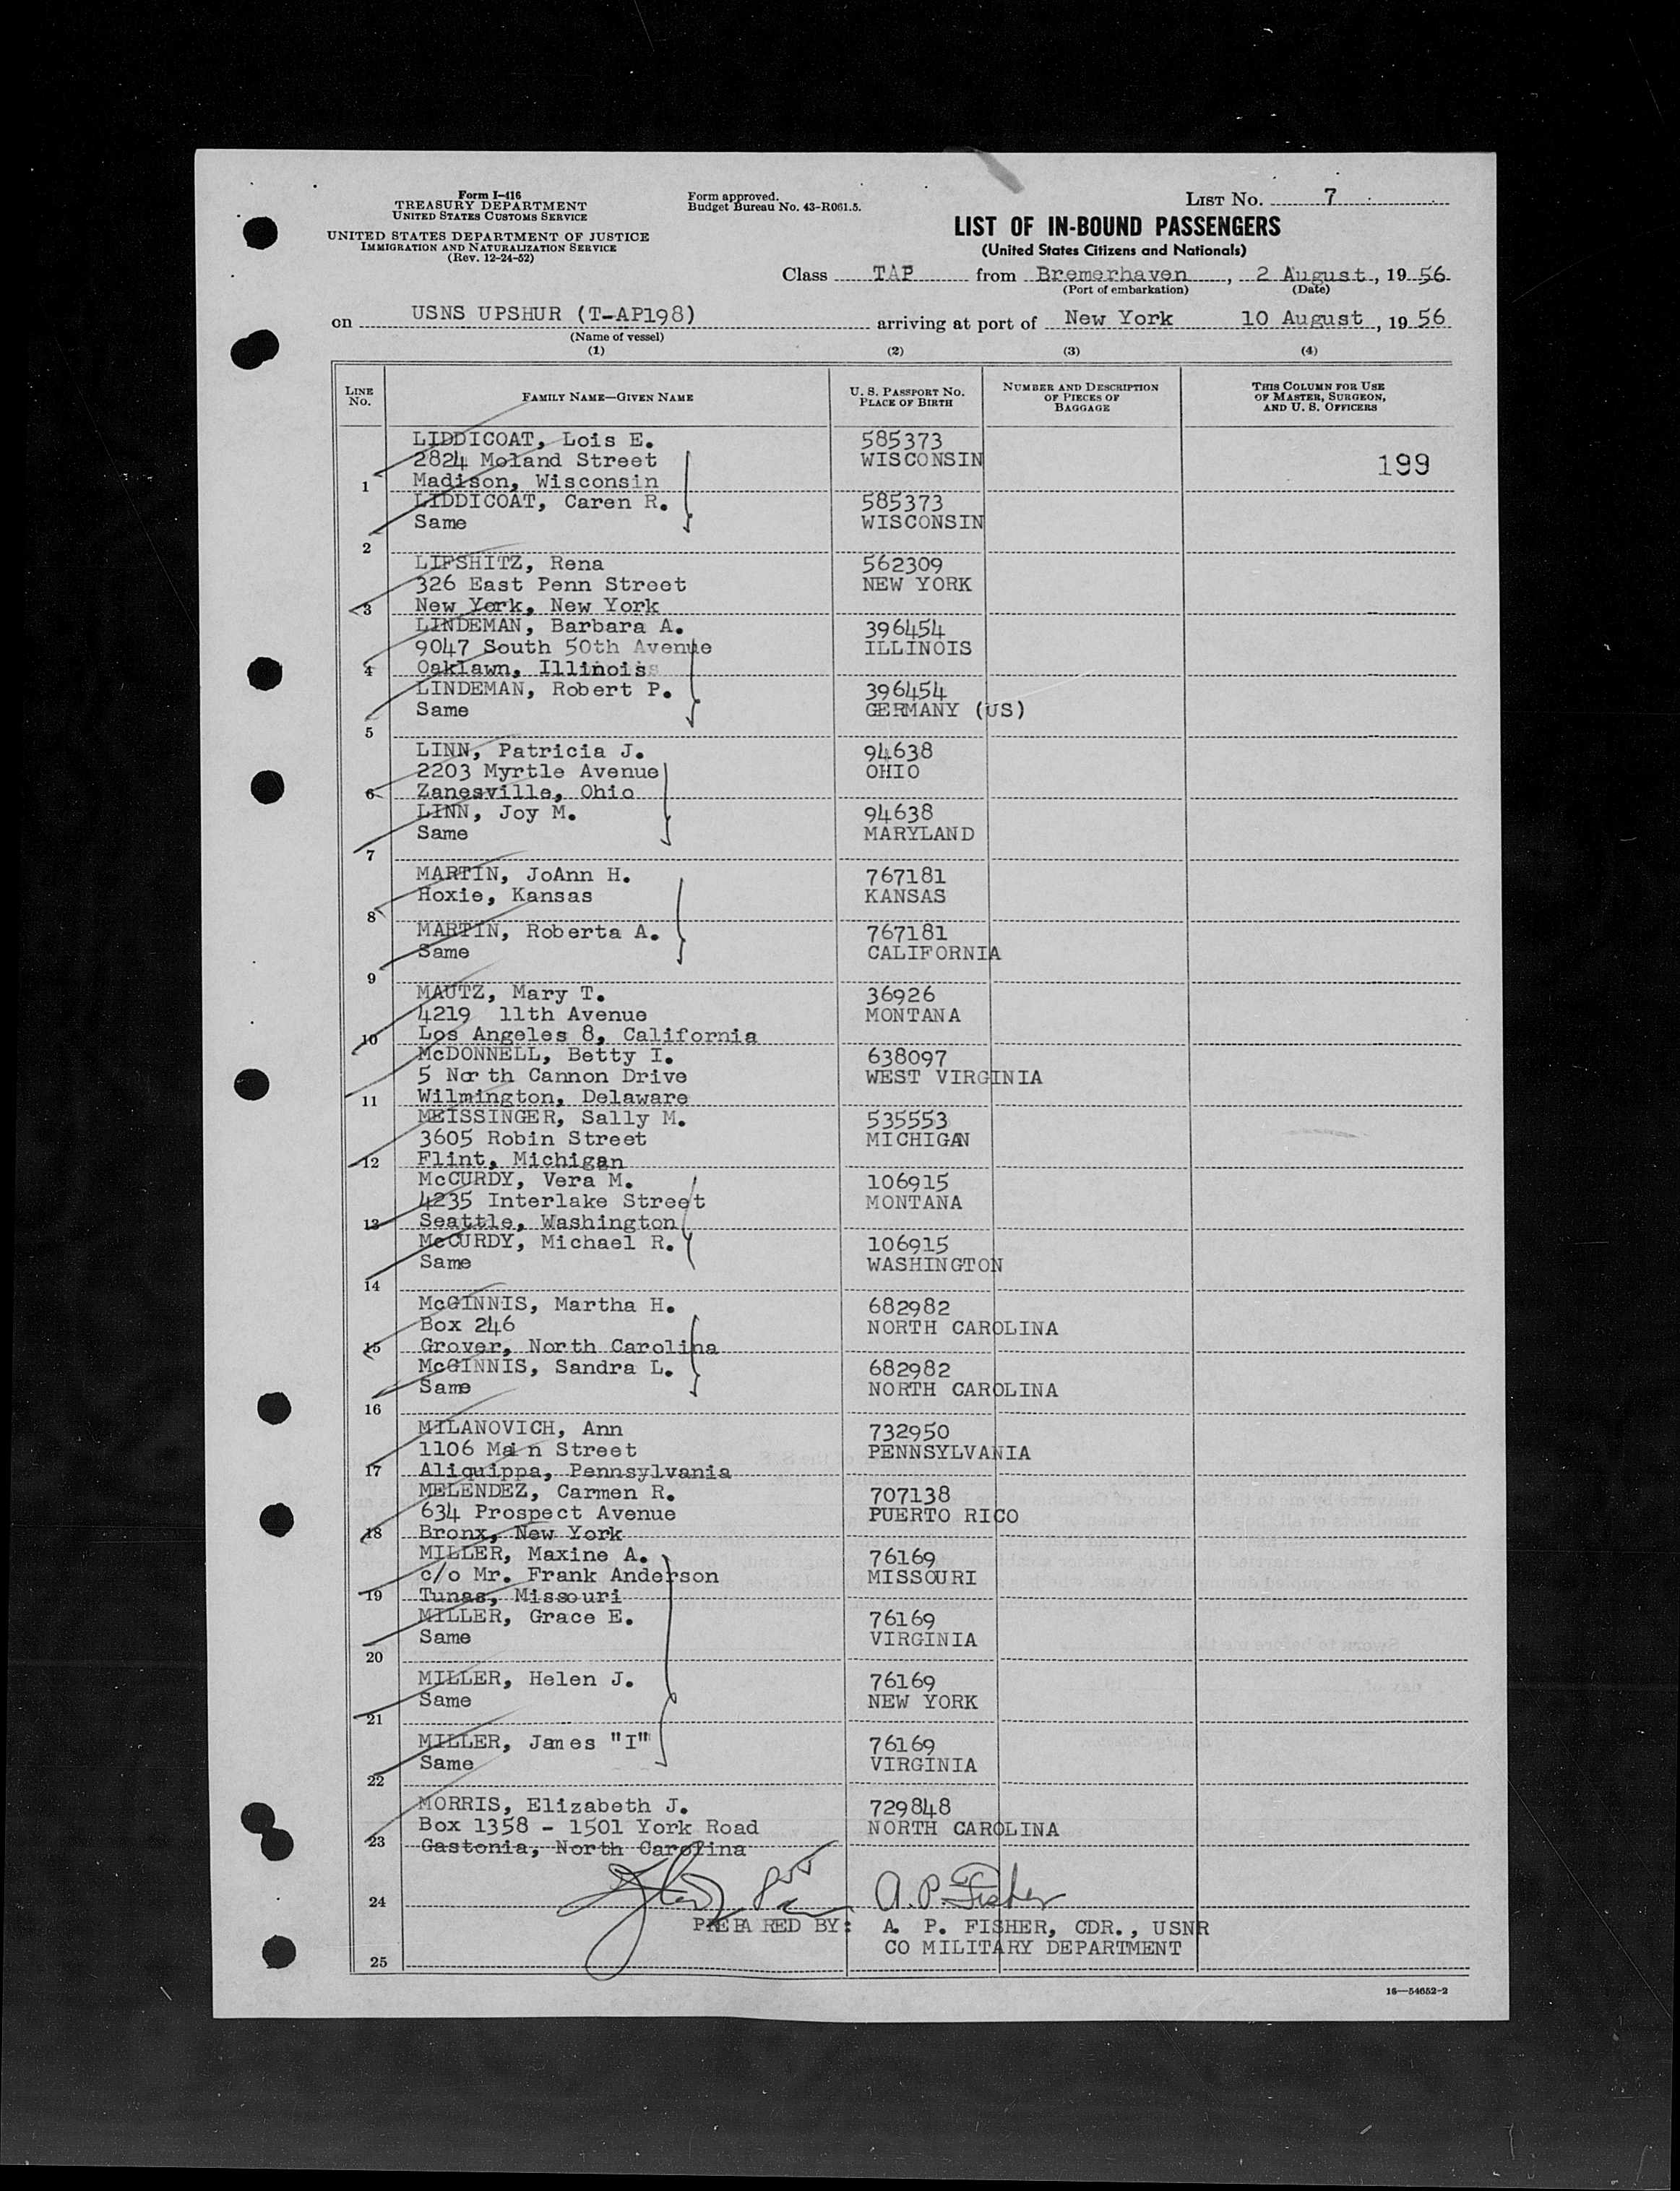 Form I-416
TREASURY DEPARTMENT
UNITED STATES CUSTOMS SERVICE
UNITED STATES DEPARTMENT OF JUSTICE
IMMIGRATION AND NATURALIZATION SERVICE
(Rev. 12-24-52)
Form approved.
Budget Bureau No. 43-R061.5.
LIST No. 7
LIST OF IN-BOUND PASSENGERS
(United States Citizens and Nationals)
Class TAP from Bremerhaven, 2 August, 1956
(Port of embarkation) (Date)
on USNS UPSHUR (T-AP198) arriving at port of New York 10 August, 1956
(Name of vessel)
(1) (2) (3) (4)
LINE No. FAMILY NAME—GIVEN NAME U. S. PASSPORT No. PLACE OF BIRTH NUMBER AND DESCRIPTION OF PIECES OF BAGGAGE THIS COLUMN FOR USE OF MASTER, SURGEON, AND U. S. OFFICERS
LIDDICOAT, Lois E. 585373
2824 Moland Street WISCONSIN 199
1 Madison, Wisconsin
LIDDICOAT, Caren R. 585373
Same WISCONSIN
2
LIFSHITZ, Rena 562309
326 East Penn Street NEW YORK
3 New York, New York
LINDEMAN, Barbara A. 396454
9047 South 50th Avenue ILLINOIS
4 Oaklawn, Illinois
LINDEMAN, Robert P. 396454
Same GERMANY (US)
5
LINN, Patricia J. 94638
2203 Myrtle Avenue OHIO
6 Zanesville, Ohio
LINN, Joy M. 94638
Same MARYLAND
7
MARTIN, JoAnn H. 767181
Hoxie, Kansas KANSAS
8
MARTIN, Roberta A. 767181
Same CALIFORNIA
9
MAUTZ, Mary T. 36926
4219 11th Avenue MONTANA
10 Los Angeles 8, California
McDONNELL, Betty I. 638097
5 North Cannon Drive WEST VIRGINIA
11 Wilmington, Delaware
MEISSINGER, Sally M. 535553
3605 Robin Street MICHIGAN
12 Flint, Michigan
McCURDY, Vera M. 106915
4235 Interlake Street MONTANA
13 Seattle, Washington
McCURDY, Michael R. 106915
Same WASHINGTON
14
McGINNIS, Martha H. 682982
Box 246 NORTH CAROLINA
15 Grover, North Carolina
McGINNIS, Sandra L. 682982
Same NORTH CAROLINA
16
MILANOVICH, Ann 732950
1106 Main Street PENNSYLVANIA
17 Aliquippa, Pennsylvania
MELENDEZ, Carmen R. 707138
634 Prospect Avenue PUERTO RICO
18 Bronx, New York
MILLER, Maxine A. 76169
c/o Mr. Frank Anderson MISSOURI
19 Tunas, Missouri
MILLER, Grace E. 76169
Same VIRGINIA
20
MILLER, Helen J. 76169
Same NEW YORK
21
MILLER, James "I" 76169
Same VIRGINIA
22
MORRIS, Elizabeth J. 729848
Box 1358 - 1501 York Road NORTH CAROLINA
23 Gastonia, North Carolina
24 A. P. Fisher
PREPARED BY: A. P. FISHER, CDR., USNR
CO MILITARY DEPARTMENT
25
16—54652-2